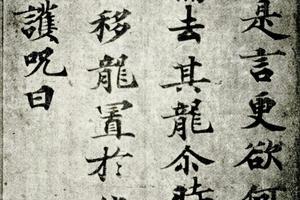 是言更欲何
去其龍尒時
移龍置於
護呪曰